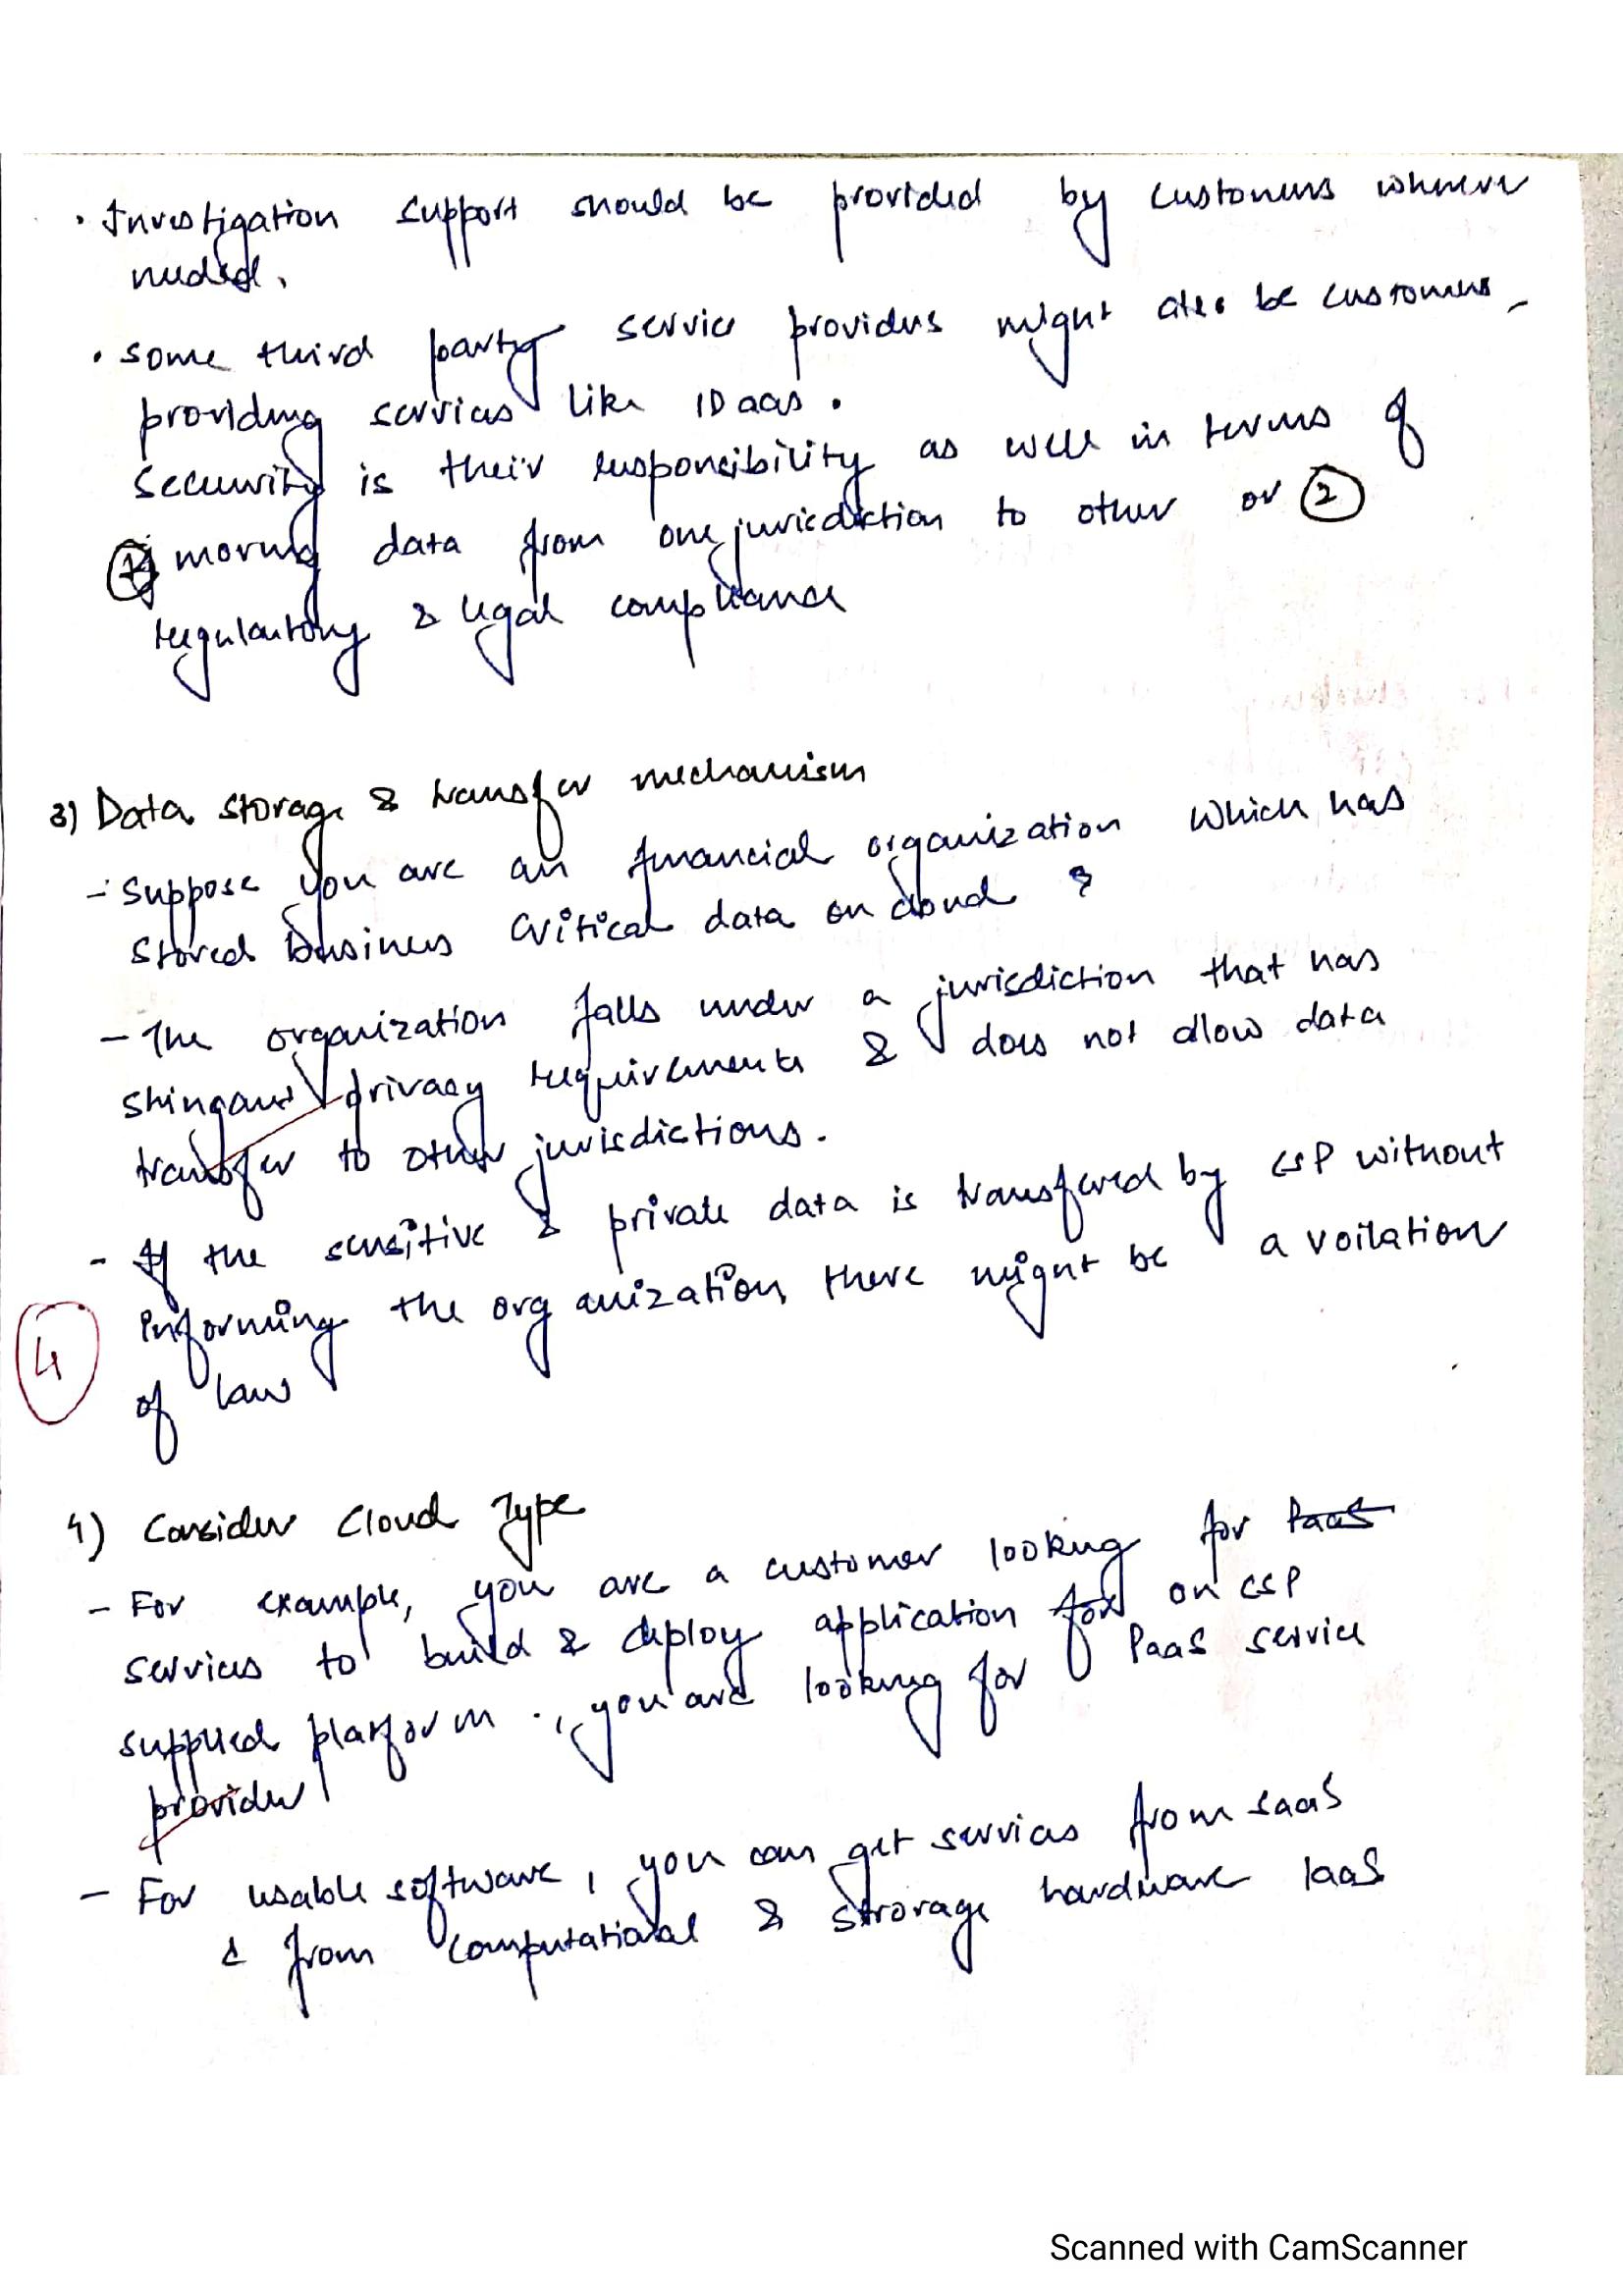 • Investigation support should be provided by customers whenever
needed.
• Some third party service providers might also be customers
providing services like IDaas.
Security is their responsibility as well in terms of
1 moving data from one jurisdiction to other or 2
regulautory & legal compliance
3) Data storage & transfer mechanism
- Suppose you are an financial organization which has
stored business critical data on cloud &
- The organization falls under a jurisdiction that has
shingant privacy requirements & does not allow data
transfer to other jurisdictions.
- If the sensitive & private data is transfered by CSP without
informing the organization, there might be a voilation
of law
4
4) Consider Cloud Type
- For example, you are a customer looking for PaaS
services to build & deploy application for on CSP
supplied platform ., you are looking for PaaS service
provider
- For usable software, you can get services from SaaS
& from computational & strorage hardware IaaS
Scanned with CamScanner